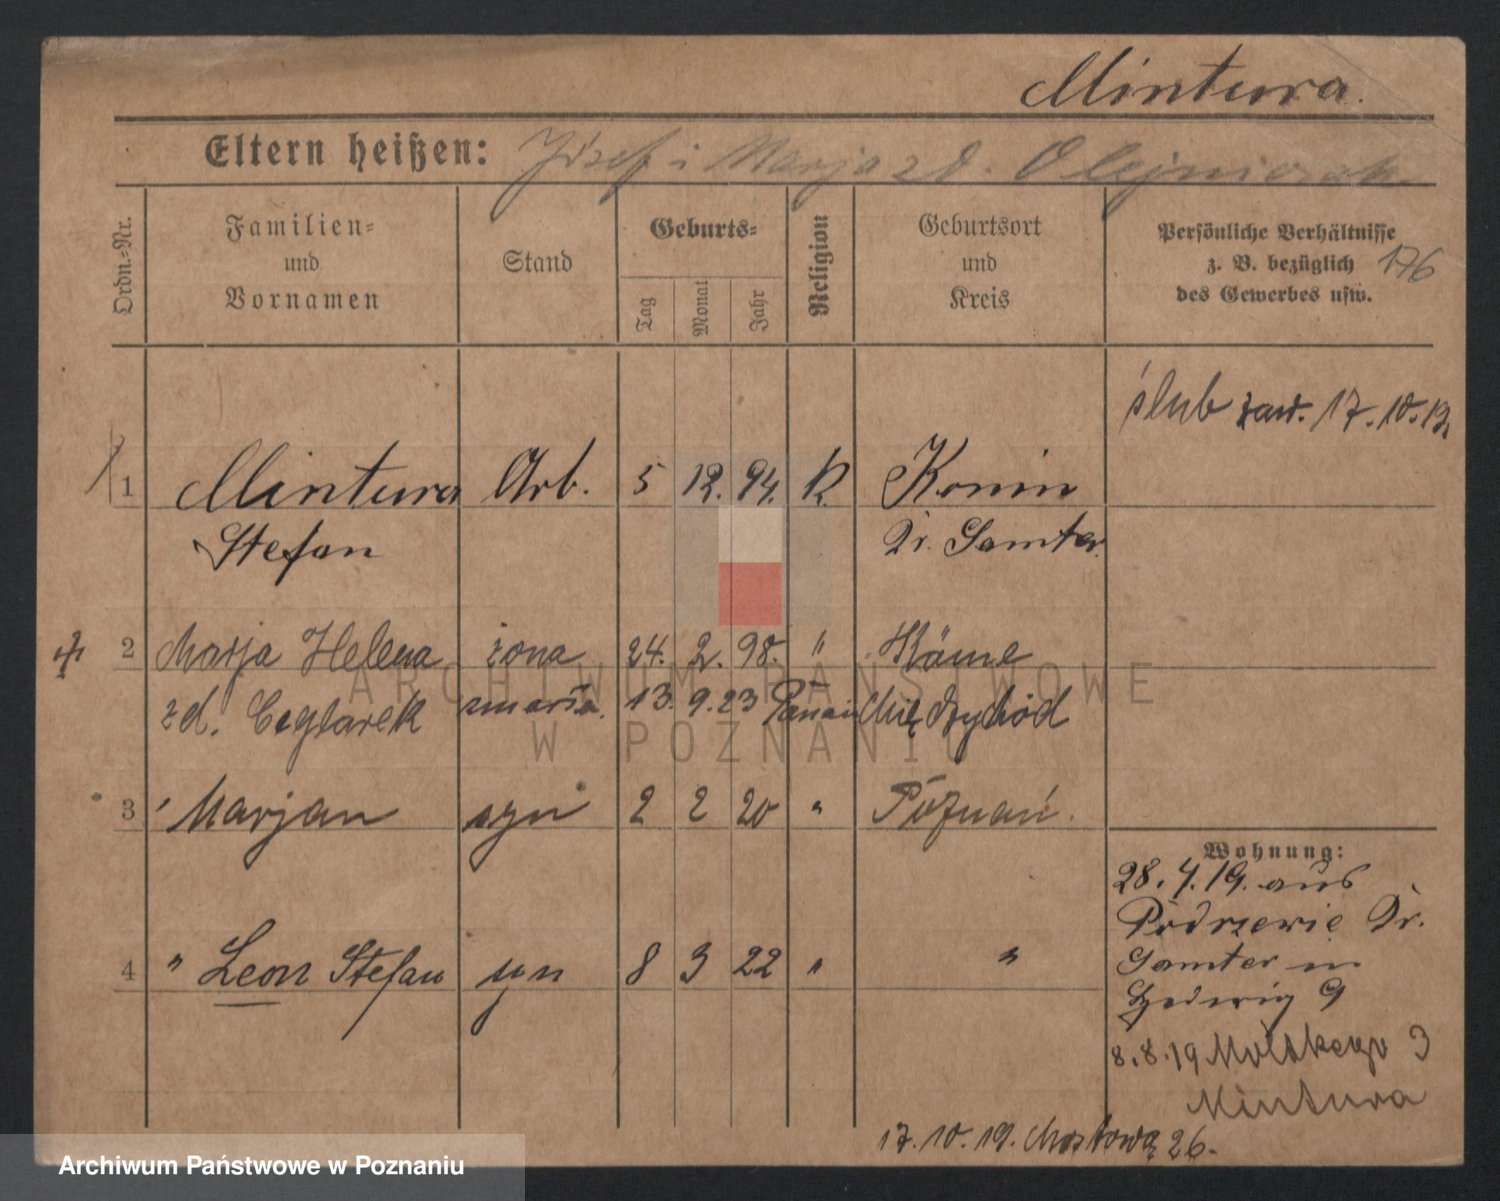 Mintura.
Eltern heißen: Józef i Marja z d. Olejniczak
Ordn.-Nr.
Familien-
und
Vornamen
Stand
Geburts-
Tag
Monat
Jahr
Religion
Geburtsort
und
Kreis
Persönliche Verhältnisse
z. B. bezüglich
des Gewerbes usw.
176
ślub zaw. 17.10.19.
1 Mintura Arb. 5 12. 94. K. Konin
Stefan Kr. Samter.
2 Marja Helena żona 24. 2. 98. "
zd. Ceglarek zmarła. 13. 9. 23 Międzychód
3 Marjan syn 2 2 20 " Poznań.
4 " Leon Stefan syn 8 3 22 " "
Wohnung:
28.4.19. aus
Podrzewie Kr.
Samter in
Hedwig 9
8.8.19 Moltkego 3
Mintura
17.10.19. Mostowa 26.
ARCHIWUM PAŃSTWOWE
W POZNANIU
Archiwum Państwowe w Poznaniu